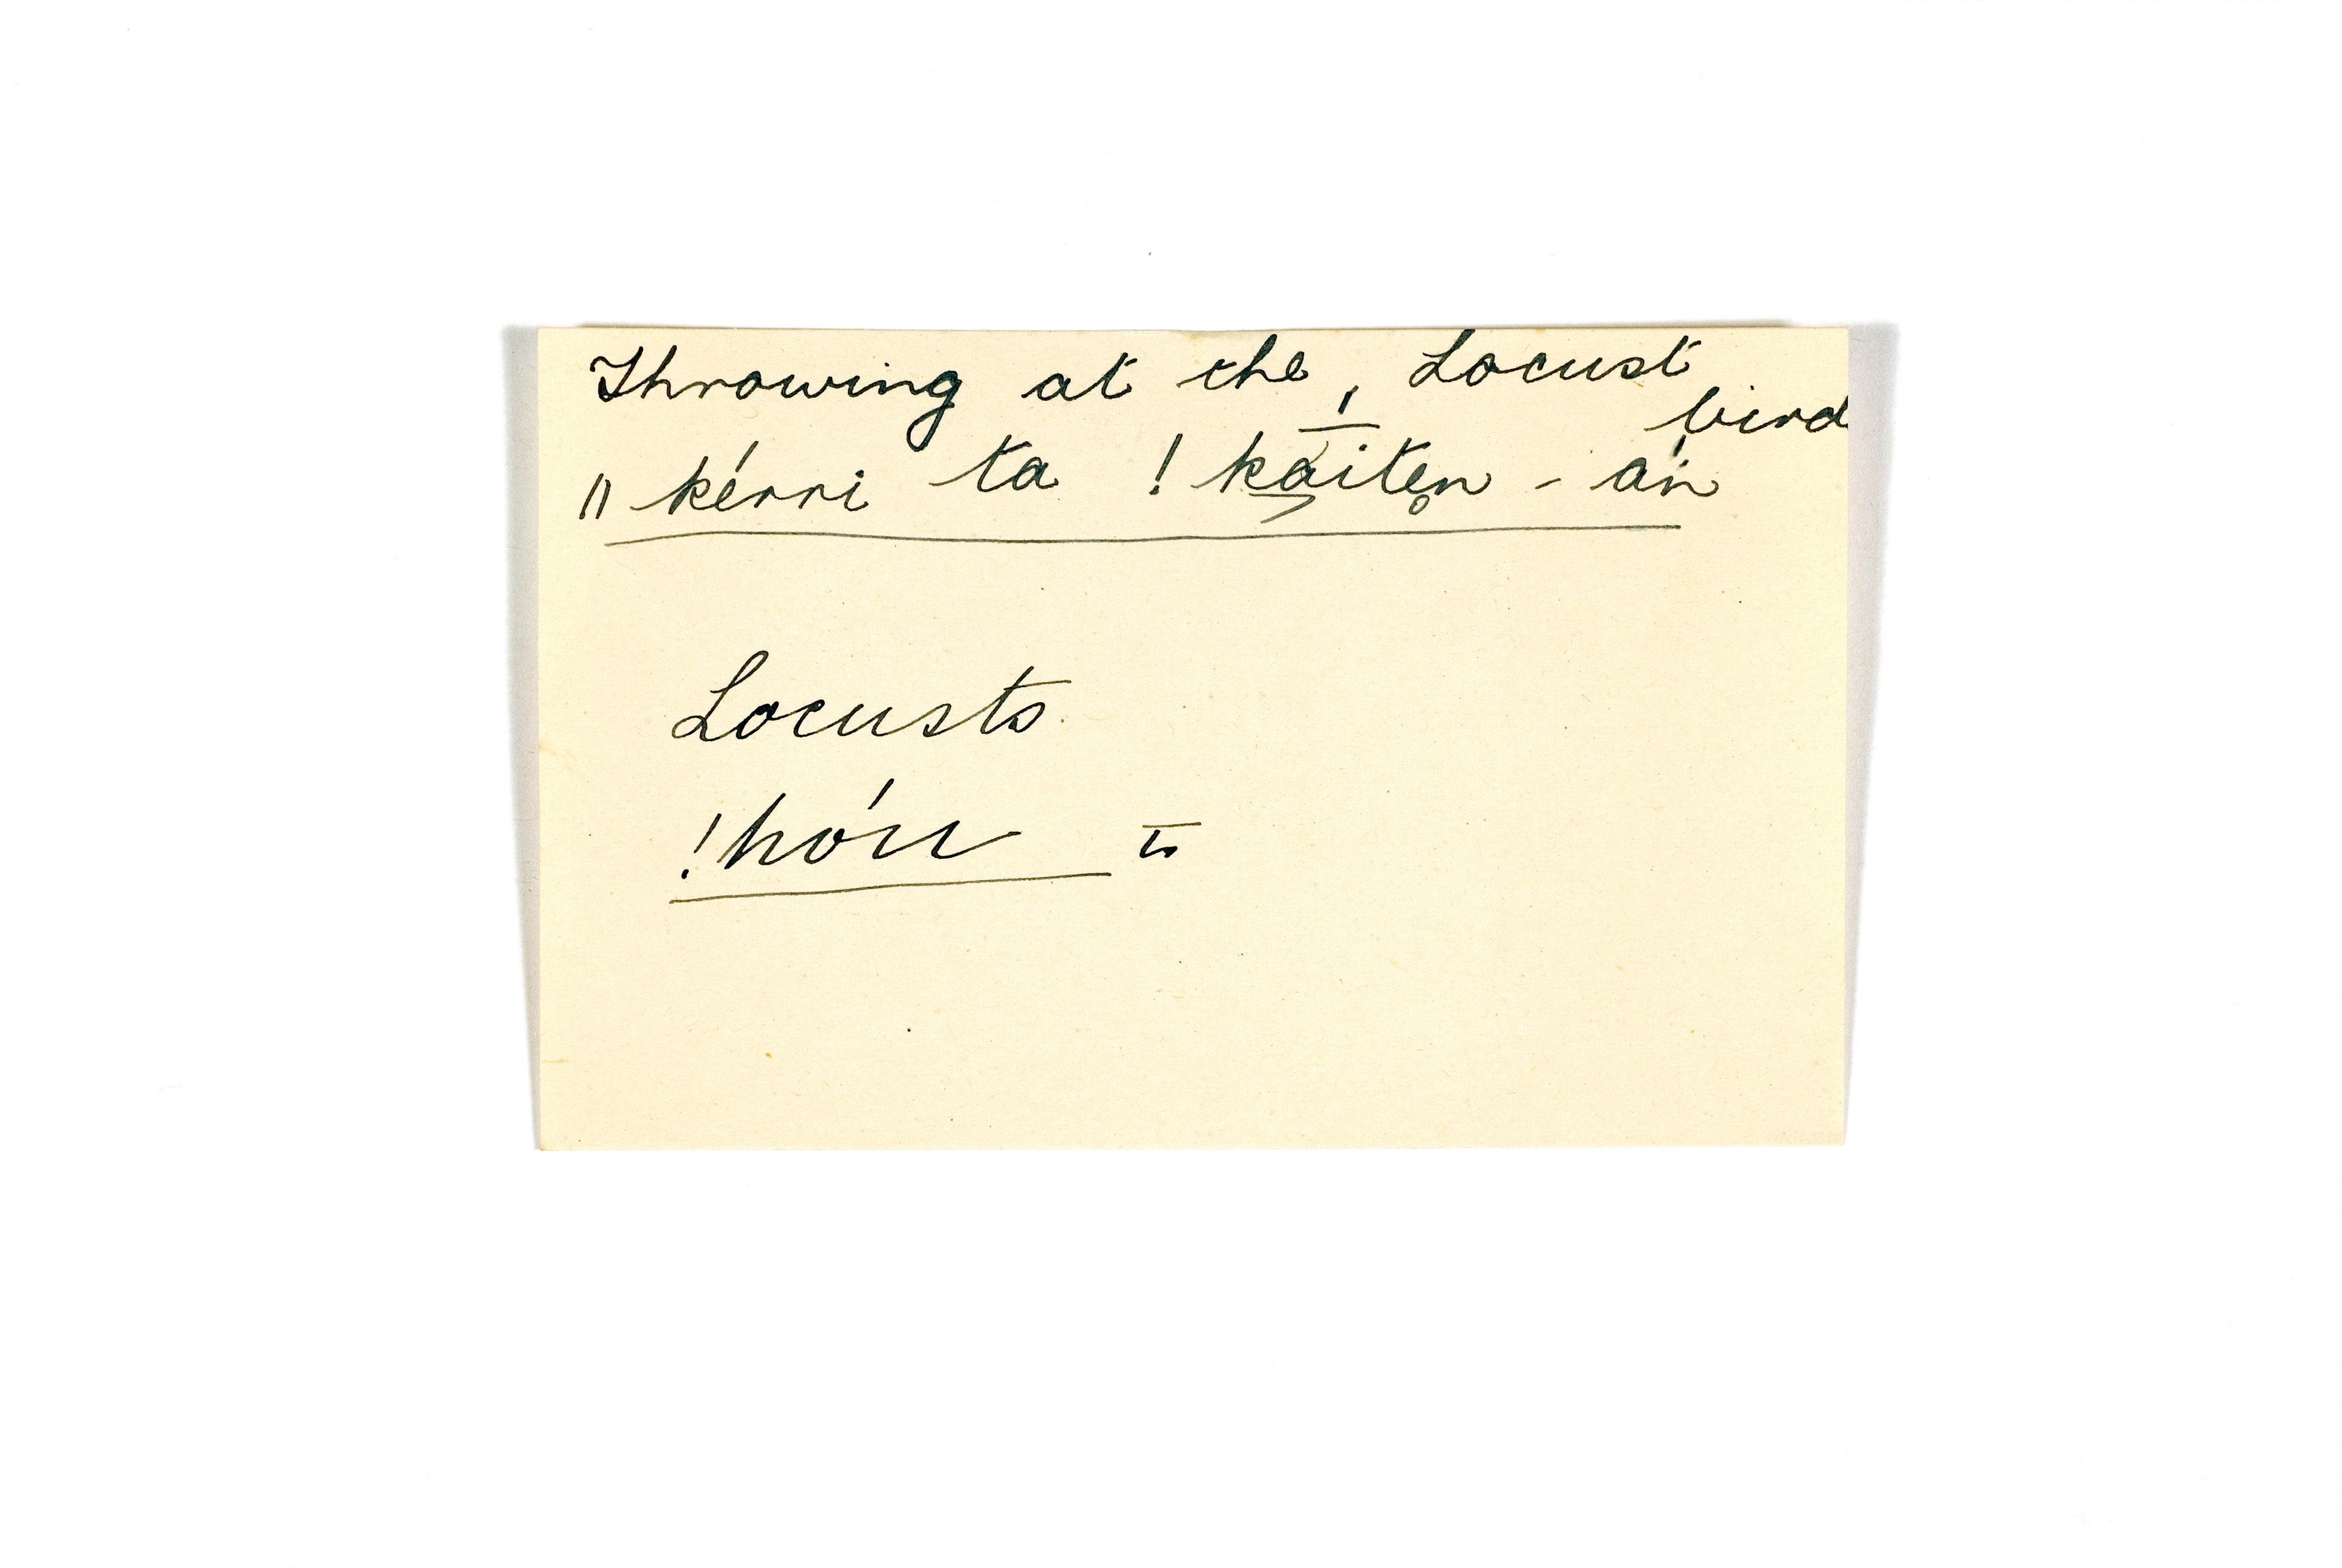 Throwing at the Locust
bird
ǁkérri ta !k̲áĭten̥ - áń
Locusts
!hóu ť